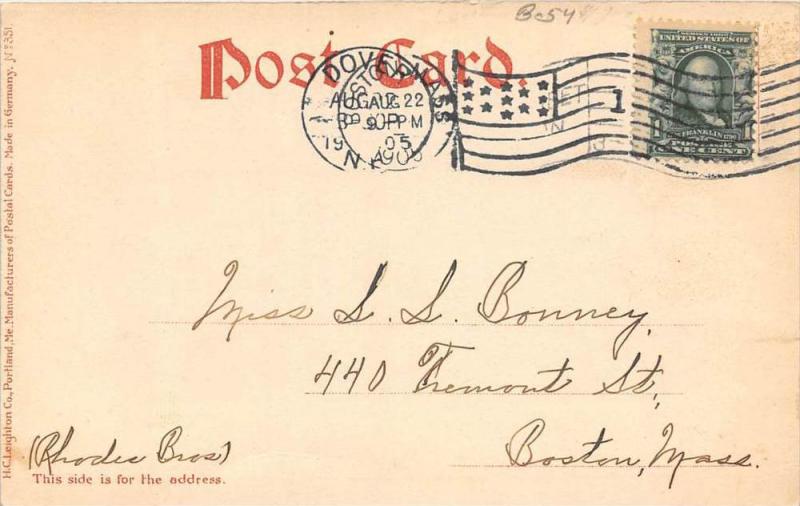 Bc54
Post Card.
DOVER
AUG 22
N.H.
1905
1
SERIES 1902
UNITED STATES OF
AMERICA
FRANKLIN
POSTAGE
ONE CENT
Miss L. L. Bonney,
440 Tremont St.,
Boston, Mass.
(Rhodes Bros)
This side is for the address.
H.C. Leighton Co., Portland, Me. Manufacturers of Postal Cards. Made in Germany. No 351.